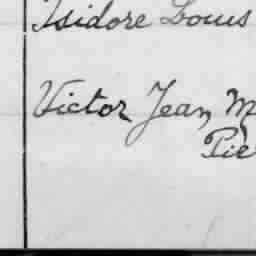 Isidore Louis
Victor Jean M
Pie